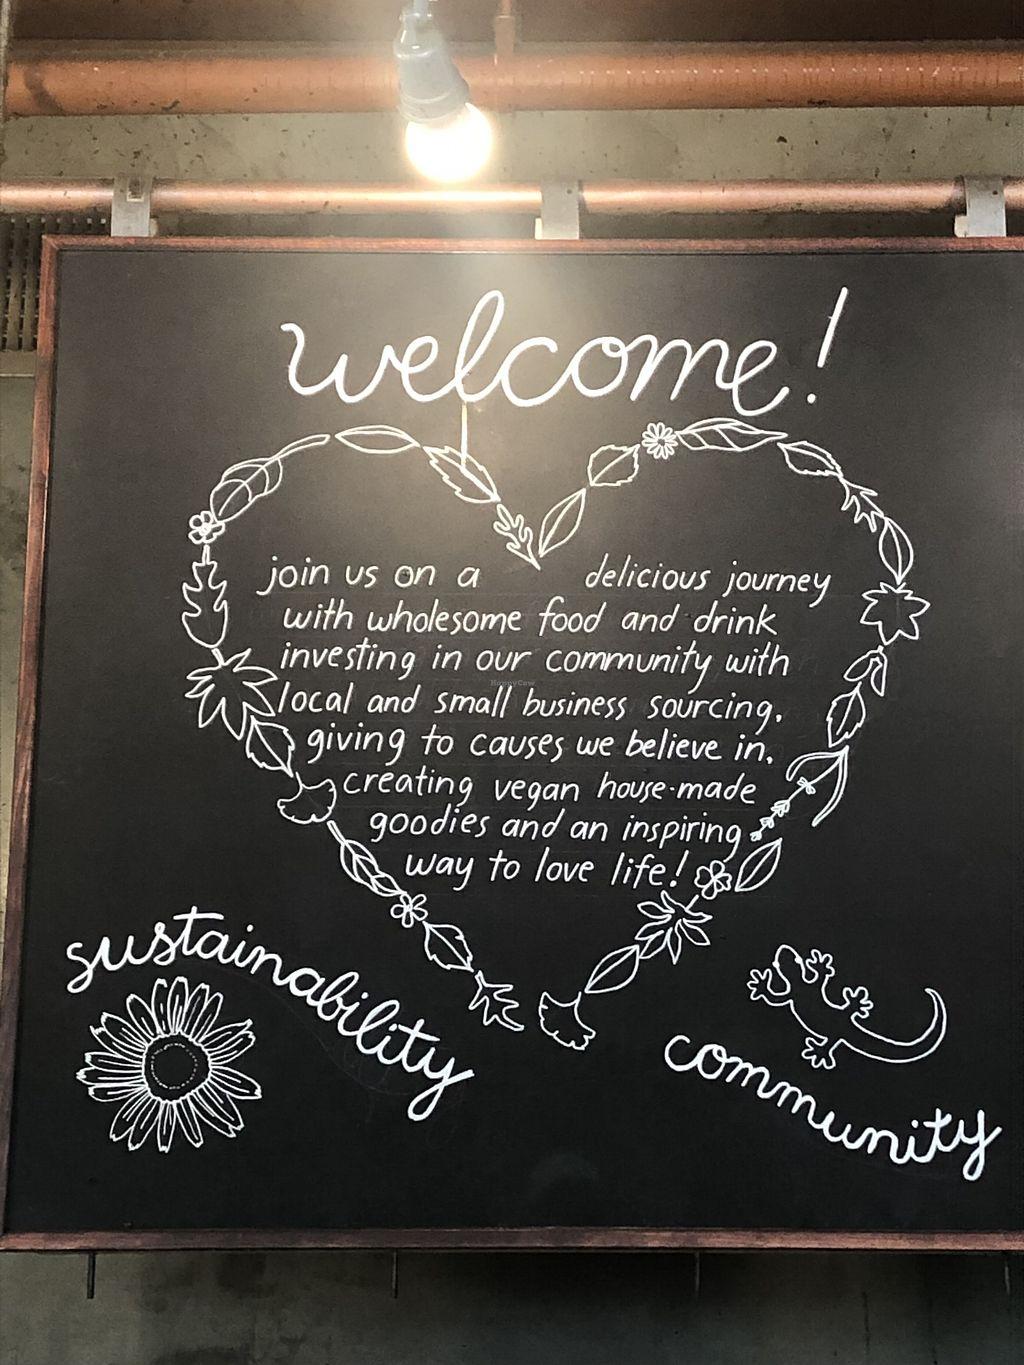 welcome!
join us on a delicious journey
with wholesome food and drink
investing in our community with
local and small business sourcing,
giving to causes we believe in,
creating vegan house-made
goodies and an inspiring
way to love life!
sustainability
community
HappyCow